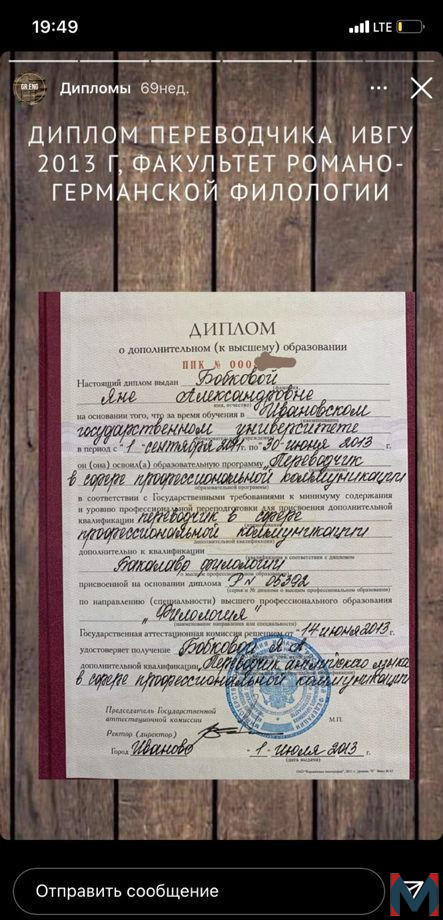 19:49
LTE
GR.ENG
Дипломы 69нед.
ДИПЛОМ ПЕРЕВОДЧИКА ИВГУ
2013 Г, ФАКУЛЬТЕТ РОМАНО-
ГЕРМАНСКОЙ ФИЛОЛОГИИ
ДИПЛОМ
о дополнительном (к высшему) образовании
ППК № 000
Настоящий диплом выдан Бобковой
Яне Александровне
на основании того, что за время обучения в Ивановском
государственном университете
в период с «1» сентября 2011 г. по «30» июня 2013 г.
он (она) освоил(а) образовательную программу Переводчик
в сфере профессиональной коммуникации
в соответствии с Государственными требованиями к минимуму содержания
и уровню профессиональной переподготовки для присвоения дополнительной
квалификации переводчик в сфере
профессиональной коммуникации
дополнительно к квалификации
Бакалавр филологии
присвоенной на основании диплома Р № 05392
по направлению (специальности) высшего профессионального образования
„Филология“
Государственная аттестационная комиссия решением от «14» июня 2013 г.
удостоверяет получение Бобковой Я. А.
дополнительной квалификации Переводчик английского языка
в сфере профессиональной коммуникации
Председатель Государственной
аттестационной комиссии
Ректор (директор)
М.П.
Город Иваново «1» июля 2013 г.
(дата выдачи)
Отправить сообщение
М